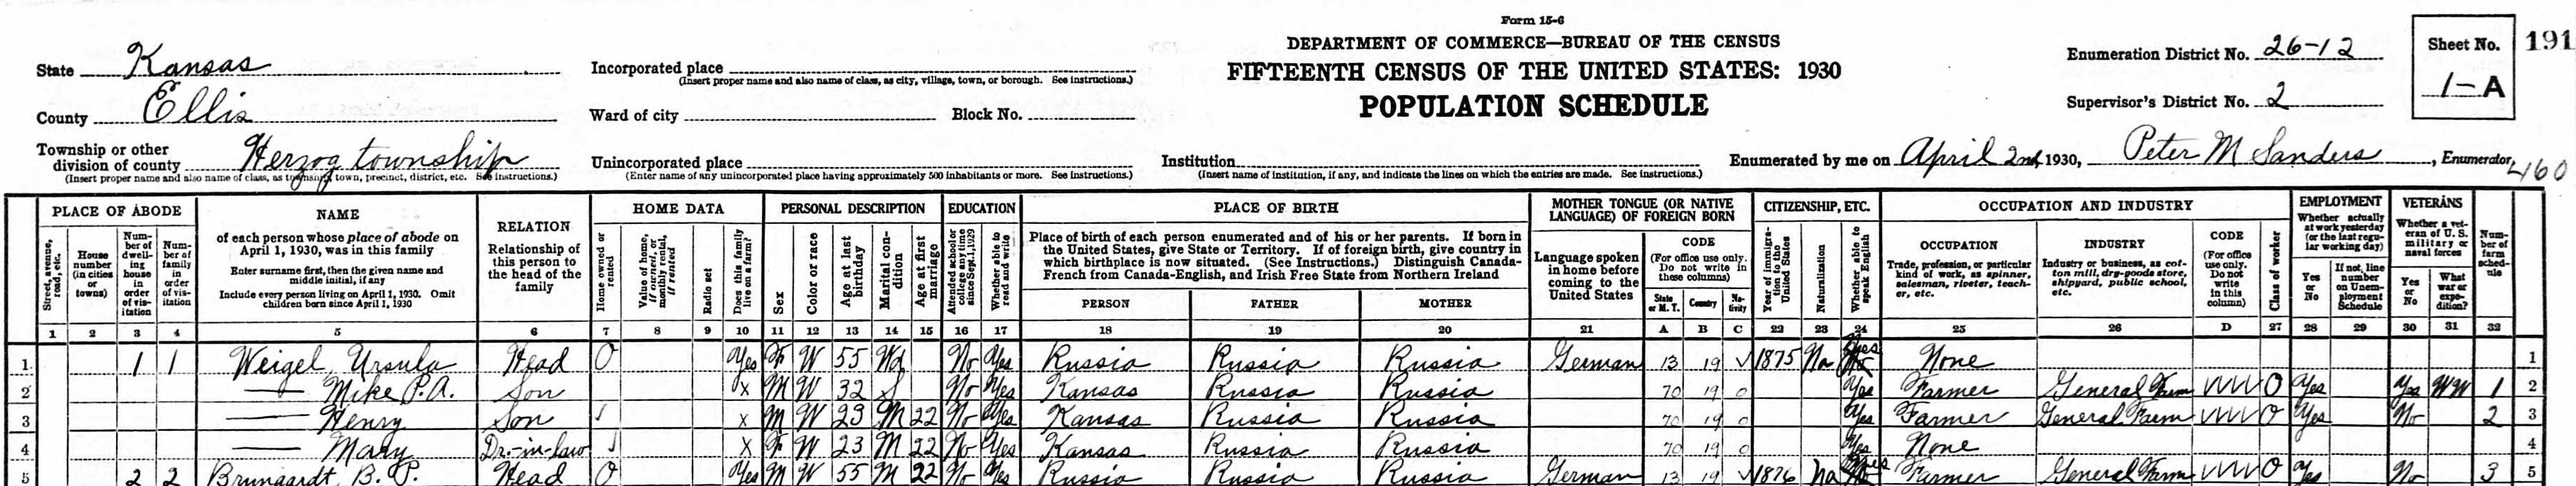 Form 15-6
DEPARTMENT OF COMMERCE—BUREAU OF THE CENSUS
FIFTEENTH CENSUS OF THE UNITED STATES: 1930
POPULATION SCHEDULE
State Kansas
County Ellis
Township or other division of county Herzog township
(Insert proper name and also name of class, as township, town, precinct, district, etc. See instructions.)
Incorporated place
(Insert proper name and also name of class, as city, village, town, or borough. See instructions.)
Ward of city Block No.
Unincorporated place
(Enter name of any unincorporated place having approximately 500 inhabitants or more. See instructions.)
Institution
(Insert name of institution, if any, and indicate the lines on which the entries are made. See instructions.)
Enumeration District No. 26-12
Supervisor's District No. 2
Sheet No.
1-A
191
Enumerated by me on April 2nd, 1930, Peter M Sanders, Enumerator
460
PLACE OF ABODE
Street, avenue, road, etc.
House number (in cities or towns)
Number of dwelling house in order of visitation
Number of family in order of visitation
NAME
of each person whose place of abode on April 1, 1930, was in this family
Enter surname first, then the given name and middle initial, if any
Include every person living on April 1, 1930. Omit children born since April 1, 1930
RELATION
Relationship of this person to the head of the family
HOME DATA
Home owned or rented
Value of home, if owned, or monthly rental, if rented
Radio set
Does this family live on a farm?
PERSONAL DESCRIPTION
Sex
Color or race
Age at last birthday
Marital condition
Age at first marriage
EDUCATION
Attended school or college any time since Sept. 1, 1929
Whether able to read and write
PLACE OF BIRTH
Place of birth of each person enumerated and of his or her parents. If born in the United States, give State or Territory. If of foreign birth, give country in which birthplace is now situated. (See Instructions.) Distinguish Canada-French from Canada-English, and Irish Free State from Northern Ireland
PERSON FATHER MOTHER
MOTHER TONGUE (OR NATIVE LANGUAGE) OF FOREIGN BORN
Language spoken in home before coming to the United States
CODE
(For office use only. Do not write in these columns)
State or M. T. Country Nativity
CITIZENSHIP, ETC.
Year of immigration to the United States
Naturalization
Whether able to speak English
OCCUPATION AND INDUSTRY
OCCUPATION
Trade, profession, or particular kind of work, as spinner, salesman, riveter, teacher, etc.
INDUSTRY
Industry or business, as cotton mill, dry-goods store, shipyard, public school, etc.
CODE
(For office use only. Do not write in this column)
Class of worker
EMPLOYMENT
Whether actually at work yesterday (or the last regular working day)
Yes or No
If not, line number on Unemployment Schedule
VETERANS
Whether a veteran of U. S. military or naval forces
Yes or No
What war or expedition?
Number of farm schedule
1 2 3 4 5 6 7 8 9 10 11 12 13 14 15 16 17 18 19 20 21 A B C 22 23 24 25 26 D 27 28 29 30 31 32
1 1 1 Weigel, Ursula Head O Yes F W 55 Wd No Yes Russia Russia Russia German 13 19 V 1875 Na Yes None 1
2 — Mike P.A. Son X M W 32 S No Yes Kansas Russia Russia 70 19 0 Yes Farmer General Farm VVVV O Yes Yes WW 1 2
3 — Henry Son X M W 23 M 22 No Yes Kansas Russia Russia 70 19 0 Yes Farmer General Farm VVVV O Yes No 2 3
4 — Mary Dr.-in-law X F W 23 M 22 No Yes Kansas Russia Russia 70 19 0 Yes None 4
5 2 2 Brungardt, B. P. Head O Yes M W 55 M 22 No Yes Russia Russia Russia German 13 19 V 1876 Na Yes Farmer General Farm VVVV O Yes No 3 5